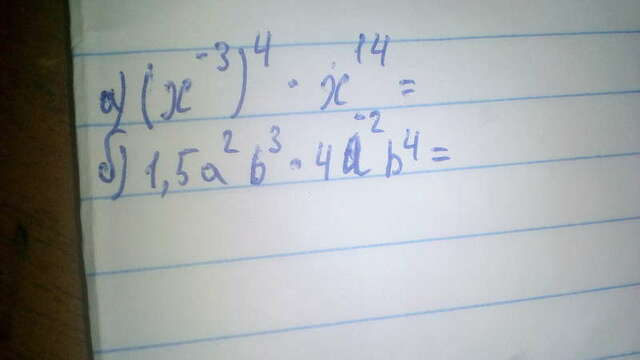 а) (x⁻³)⁴ · x¹⁴ =
б) 1,5a²b³ · 4a⁻²b⁴ =